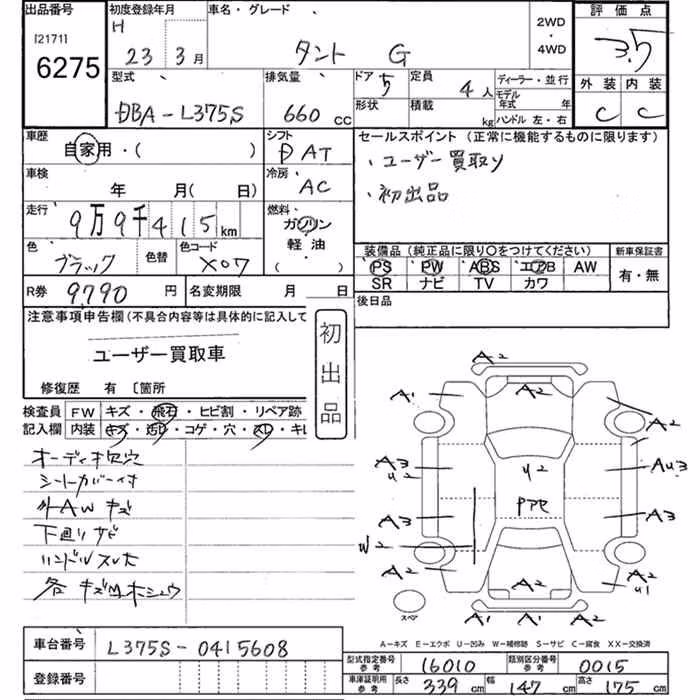 出品番号
[2171]
6275
初度登録年月
H
23 3月
車名・グレード
タント G
2WD
・
4WD
評価点
3.5
外装 内装
C C
型式
DBA-L375S
排気量
660 cc
ドア 5
形状
定員 4人
積載 kg
ディーラー・並行
モデル年式 年
ハンドル 左・右
車歴
自家用・( )
シフト
D AT
車検
年 月( 日)
冷房
AC
走行
9万9千415km
燃料
ガソリン
軽油
( )
色
ブラック
色替
色コード
X07
R券 9790 円
名変期限 月 日
セールスポイント (正常に機能するものに限ります)
・ユーザー買取り
・初出品
装備品 (純正品に限り○をつけてください)
PS PW ABS エアB AW
SR ナビ TV カワ
新車保証書
有・無
後日品
注意事項申告欄(不具合内容等は具体的に記入して
ユーザー買取車
修復歴 有 〔箇所
初出品
検査員 FW キズ・飛石・ヒビ割・リペア跡
記入欄 内装 キズ・汚レ・コゲ・穴・スレ・キレ
オーディオ欠穴
シートカバー付
外AWキズ
下廻りサビ
ハンドルスレ大
各キズ凹
A2
A1 A2 A2
A3 U2 U2 AU3
A3 PアセA3
W2
A2 A2 A2 U1
A1 A1 A2
スペア
A-キズ E-エクボ U-凹み W-補修跡 S-サビ C-腐食 XX-交換済
車台番号 L375S-0415608
登録番号
型式指定番号 参考 16010
類別区分番号 参考 0015
車庫証明用 参考 長さ 339 cm 幅 147 cm 高さ 175 cm